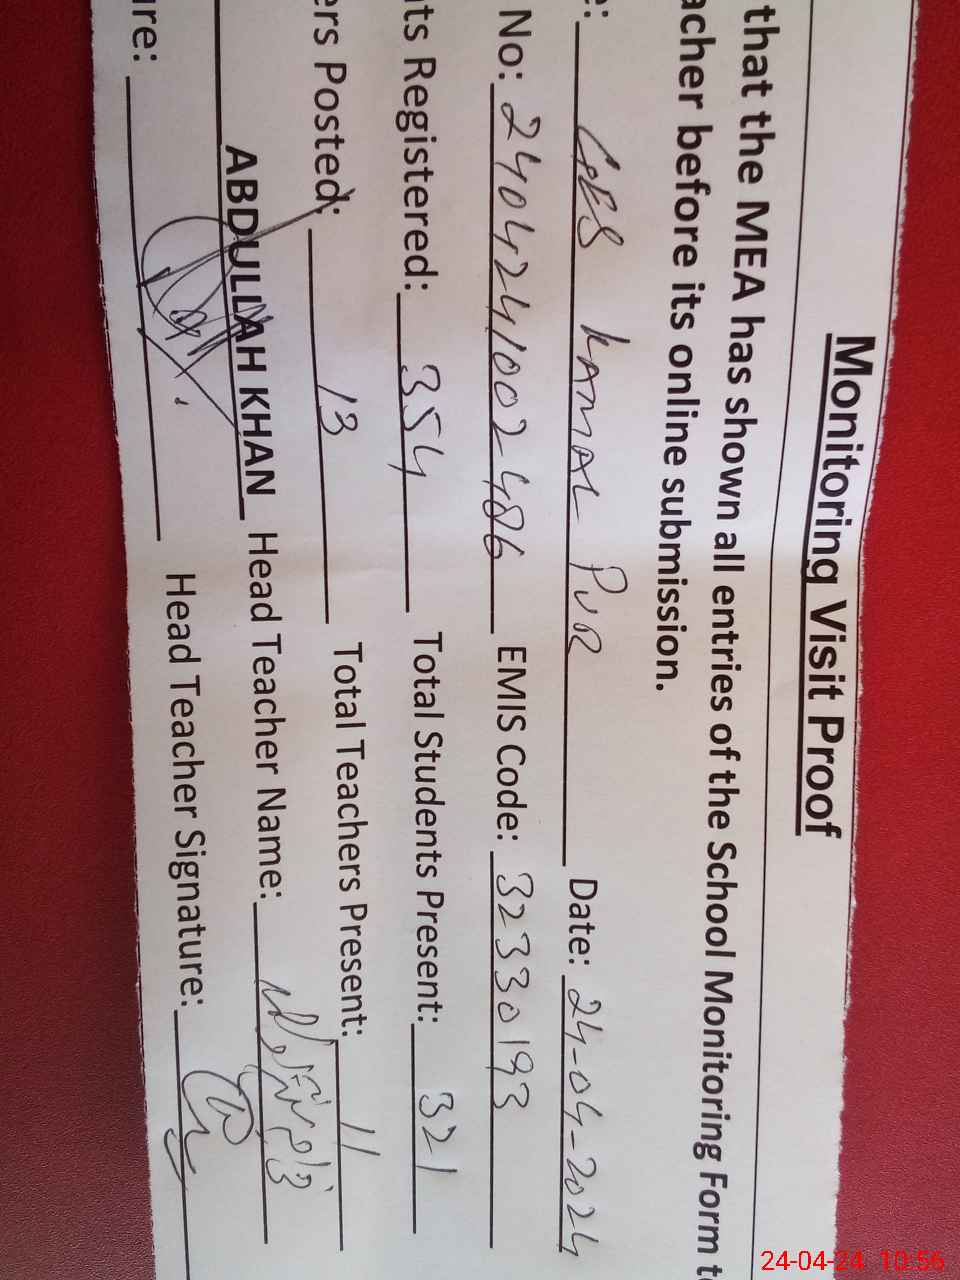 Monitoring Visit Proof
that the MEA has shown all entries of the School Monitoring Form t
acher before its online submission.
e: GPS KAMAL PUR Date: 24-04-2024
No: 2404241002486 EMIS Code: 32330193
ts Registered: 354 Total Students Present: 321
ers Posted: 13 Total Teachers Present: 11
ABDULLAH KHAN Head Teacher Name:
re: Head Teacher Signature:
24-04-24 10:56